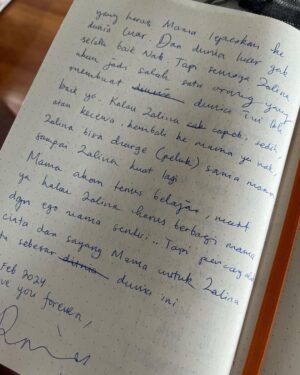 yang harus Mama lepaskan ke
dunia luar. Dan dunia luar gak
selalu baik Nak. Tapi semoga Zalina
akan jadi salah satu orang yang
membuat dunia dunia ini lbh
baik ya. Kalau Zalina capek, sedih,
atau kecewa. kembali ke mama ya nak,
Zalina bisa dicharge (peluk) sama mama
sampai Zalina kuat lagi.
Mama akan terus belajar,
ya kalau Zalina harus berbagi mama
dgn ego mama sendiri. Tapi
cinta dan sayang Mama untuk Zalina
sebesar dunia dunia ini
Feb 2024
love you forever,